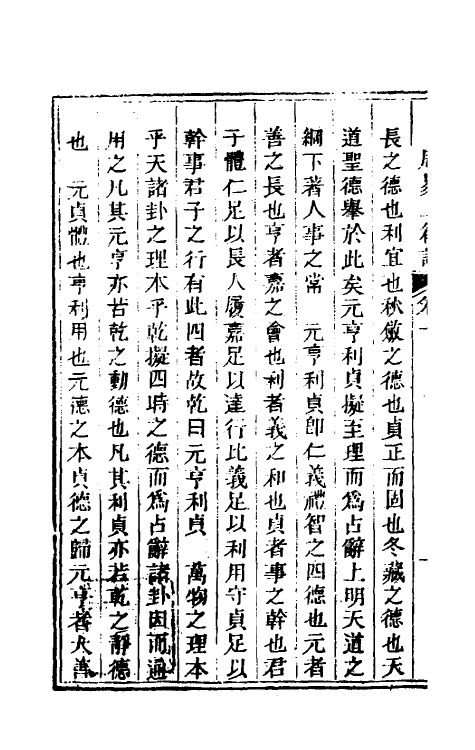 長之德也利宜也秋斂之德也貞正而固也冬藏之德也天
道聖德舉於此矣元亨利貞擬至理而爲占辭上明天道之
綱下著人事之常　元亨利貞卽仁義禮智之四德也元者
善之長也亨者嘉之會也利者義之和也貞者事之幹也君
子體仁足以長人履嘉足以達行比義足以利用守貞足以
幹事君子之行有此四者故乾曰元亨利貞　萬物之理本
乎天諸卦之理本乎乾擬四時之德而爲占辭諸卦因而通
用之凡其元亨亦若乾之動德也凡其利貞亦若乾之靜德
也　元貞體也亨利用也元德之本貞德之歸元亨者大善